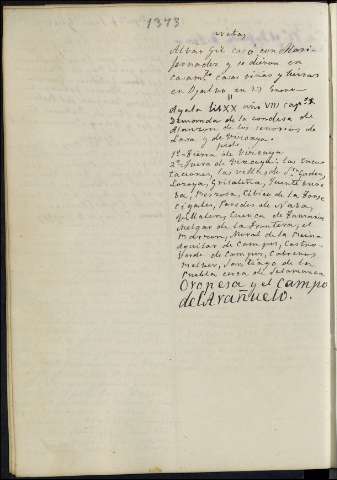 1373
Notas
Albar Gil casó con Mari
fernandes y se dieron en
casamto casas viñas y tierras
en Oyalbo en 27 Enero
Ayala tit XX año VIII capo X
Demanda de la condesa de
Alanzon de los señorios de
Lara y de Vizcaya.
pide
1o Tierra de Vizcaya
2o fuera de Vizcaya: las Encar
taciones, las villas de
Lozoya, Grisaleña, fuente bure
ba, Berzosa, Cibico de la Torre
Cigales, Paredes de Naba,
Villalon, Cuenca de Tamariz
Melgar de la frontera, el
Moral de la Reina
Aguilar de Campos, Castro-
verde de Campos, Cabreros
Santiago de la
Puebla cerca de Salamanca
Oropesa y el Campo
del Arañuelo.